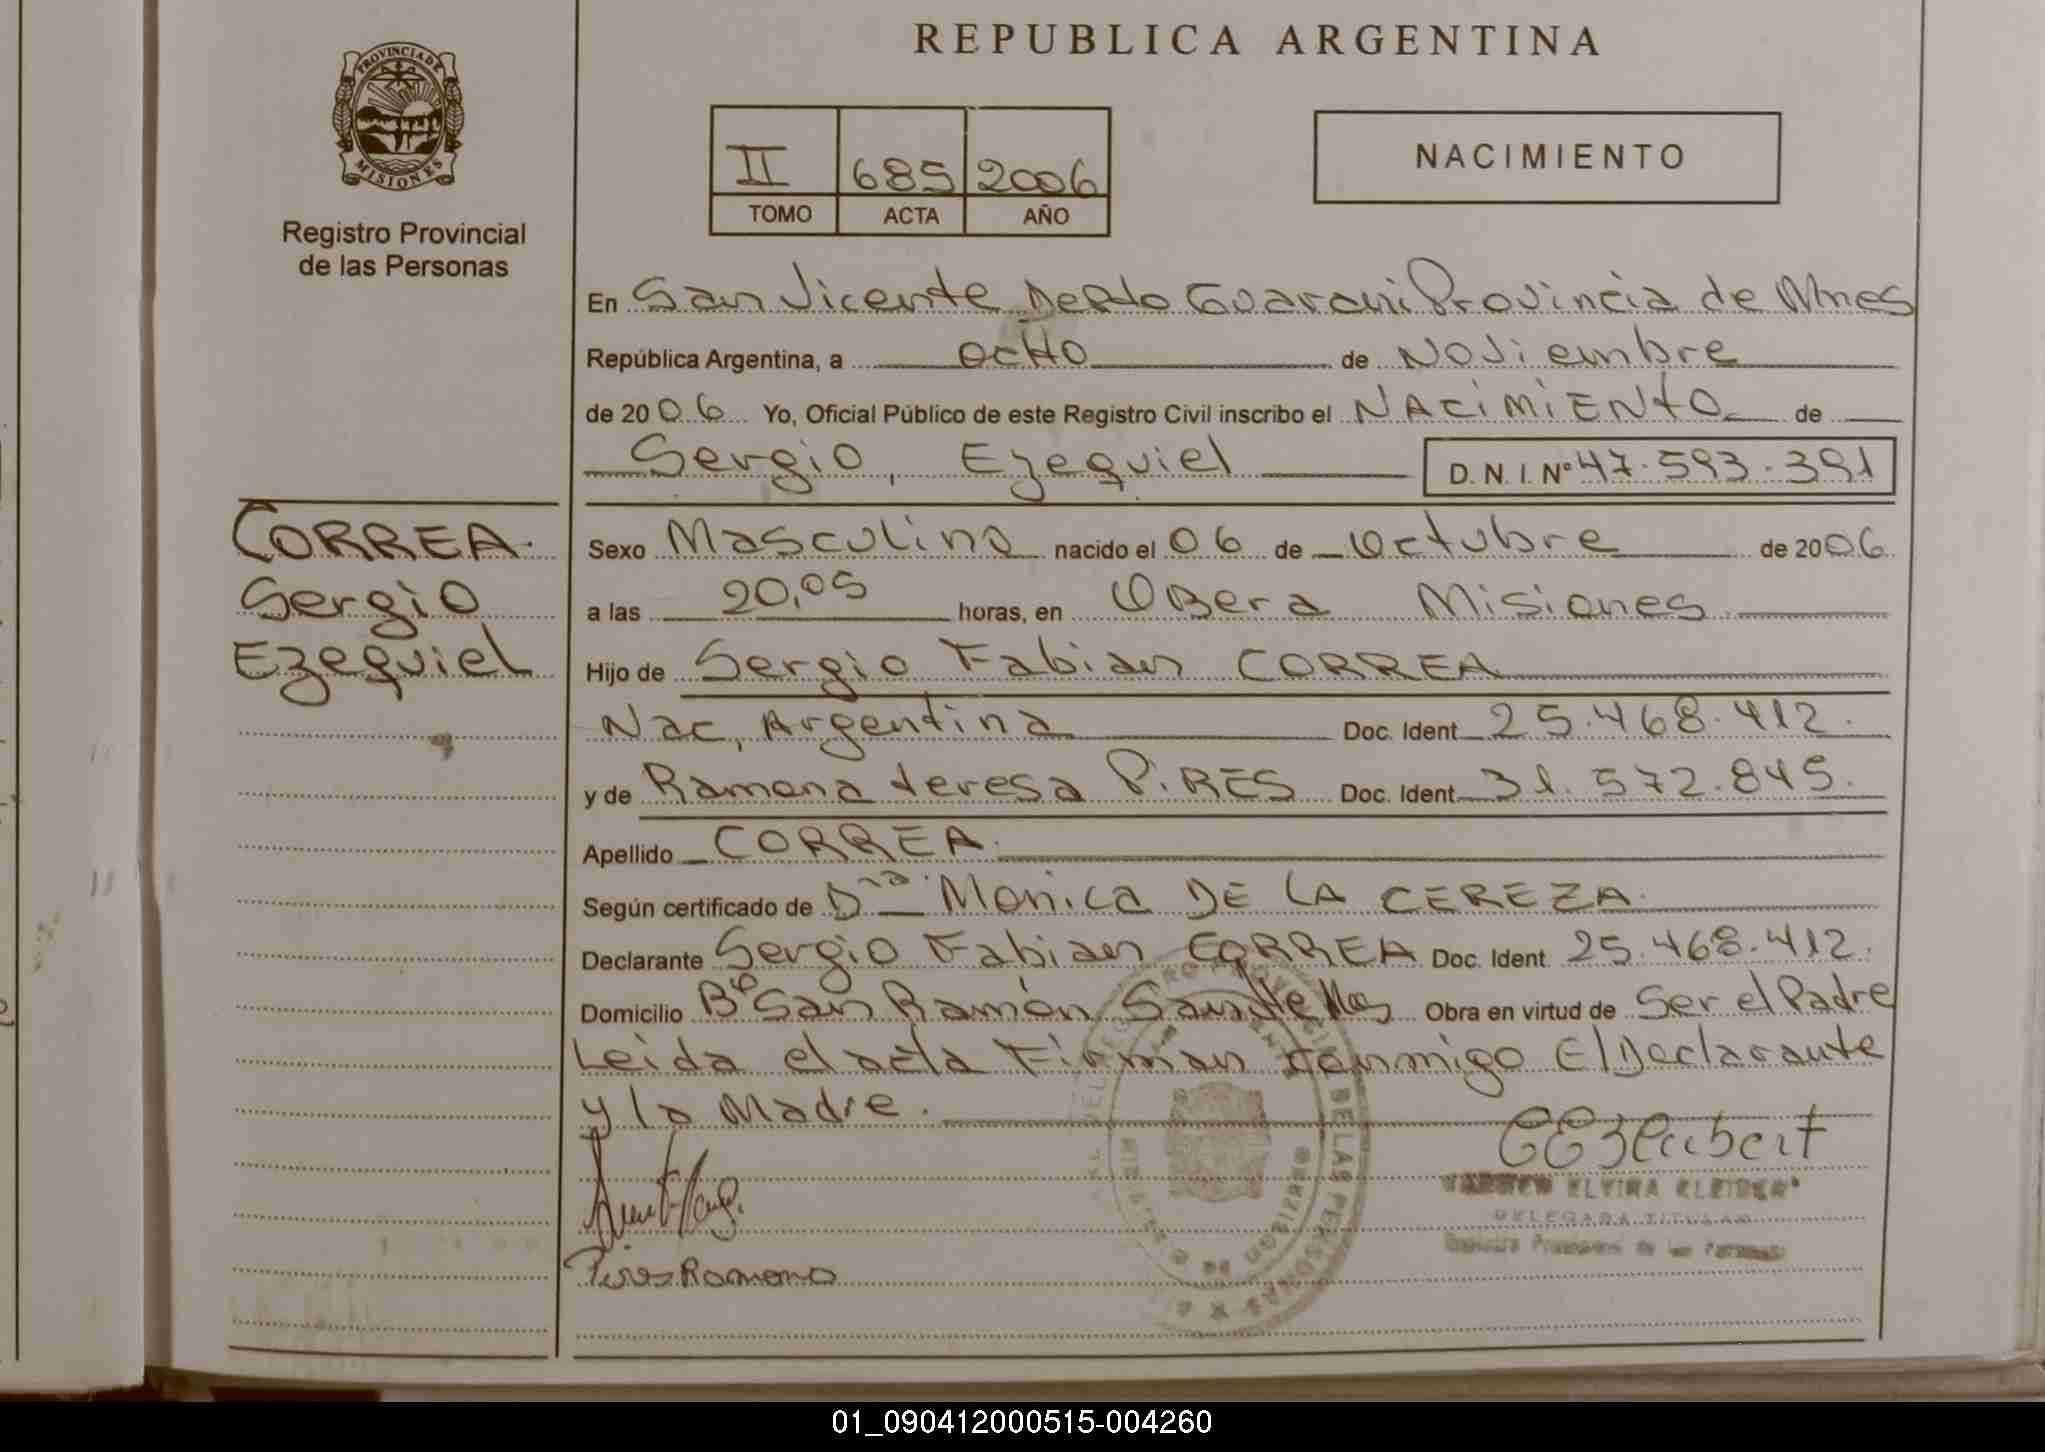 PROVINCIA DE
MISIONES
Registro Provincial
de las Personas
CORREA.
Sergio
Ezequiel
REPUBLICA ARGENTINA
II 685 2006
TOMO ACTA AÑO
NACIMIENTO
En San Vicente Depto Guarani Provincia de Mnes
República Argentina, a ocho de Noviembre
de 2006 Yo, Oficial Público de este Registro Civil inscribo el NACIMIENTO de
Sergio, Ezequiel D. N. I. Nº 47.593.391
Sexo Masculino nacido el 06 de Octubre de 2006
a las 20,05 horas, en Obera Misiones
Hijo de Sergio Fabian CORREA
Nac, Argentina Doc. Ident 25.468.412.
y de Ramona teresa PIRES Doc. Ident 31.572.845.
Apellido CORREA.
Según certificado de Dra Monica DE LA CEREZA.
Declarante Sergio Fabian CORREA Doc. Ident. 25.468.412.
Domicilio Bº San Ramón Obra en virtud de Ser el Padre
Leida el acta Firman conmigo El Declarante
y la Madre.
ELVIRA
DELEGADA TITULAR
Registro Provincial de las Personas
Pires Ramona
01_090412000515-004260